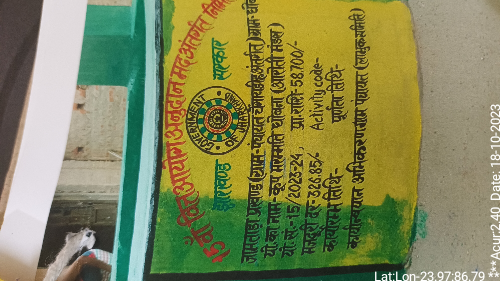 15वें वित्त आयोग अनुदान मद अंतर्गत
झारखण्ड सरकार
GOVERNMENT OF JHARKHAND
जामताड़ा प्रखण्ड (ग्राम-पंचायत
यो. का नाम- कूप मरम्मति योजना (आरती मंडल)
यो. सं.- 15/2023-24, प्रा. राशि- 58,700/-
मजदूरी दर- 326.85/- Activity code-
कार्यारम्भ तिथि- पूर्णता तिथि-
कार्यान्वयन अभिकरण ग्राम पंचायत (लाभुक समिति)
Lat:Lon-23.97:86.79
***Acur:2.40 Date: 18-10-2023